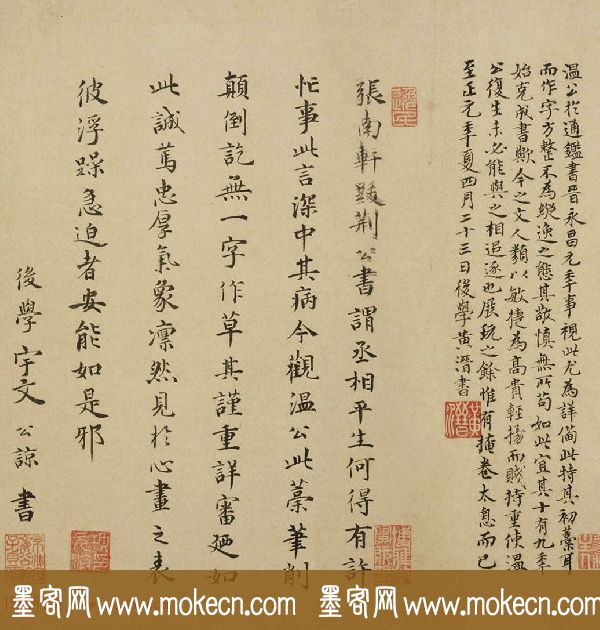 溫公於通鑑書晉永昌元年事視此尤為詳備此特其初藁耳
而作字方整不為縱逸之態其敬慎無所苟如此宜其十有九年
始克成書歟今之文人類以敏捷為高貴輕揚而賤持重使溫
公復生未必能與之相追逐也展玩之餘惟有掩卷太息而已
至正元年夏四月二十三日後學黃溍書
張南軒跋荆公書謂丞相平生何得有許
忙事此言深中其病今觀溫公此藁筆削
顛倒訖無一字作草其謹重詳審廼如
此誠篤忠厚氣象凛然見於心畫之表
彼浮躁急迫者安能如是邪
後學宇文公諒書
墨客网www.mokecn.com 墨客网www.mokecn.com